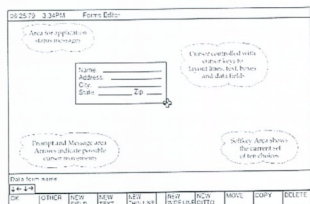 06 25 79 3:34PM Forms Editor
Area for application
status messages
Cursor controlled with
cursor keys to
layout lines, text, boxes
and data fields
Name
Address
City
State Zip
Prompt and Message area
Arrows indicate possible
cursor movements
Softkey Area shows
the current set
of ten choices
Data form name
OK OTHER NEW NEW NEW NEW NEW MOVE COPY DELETE